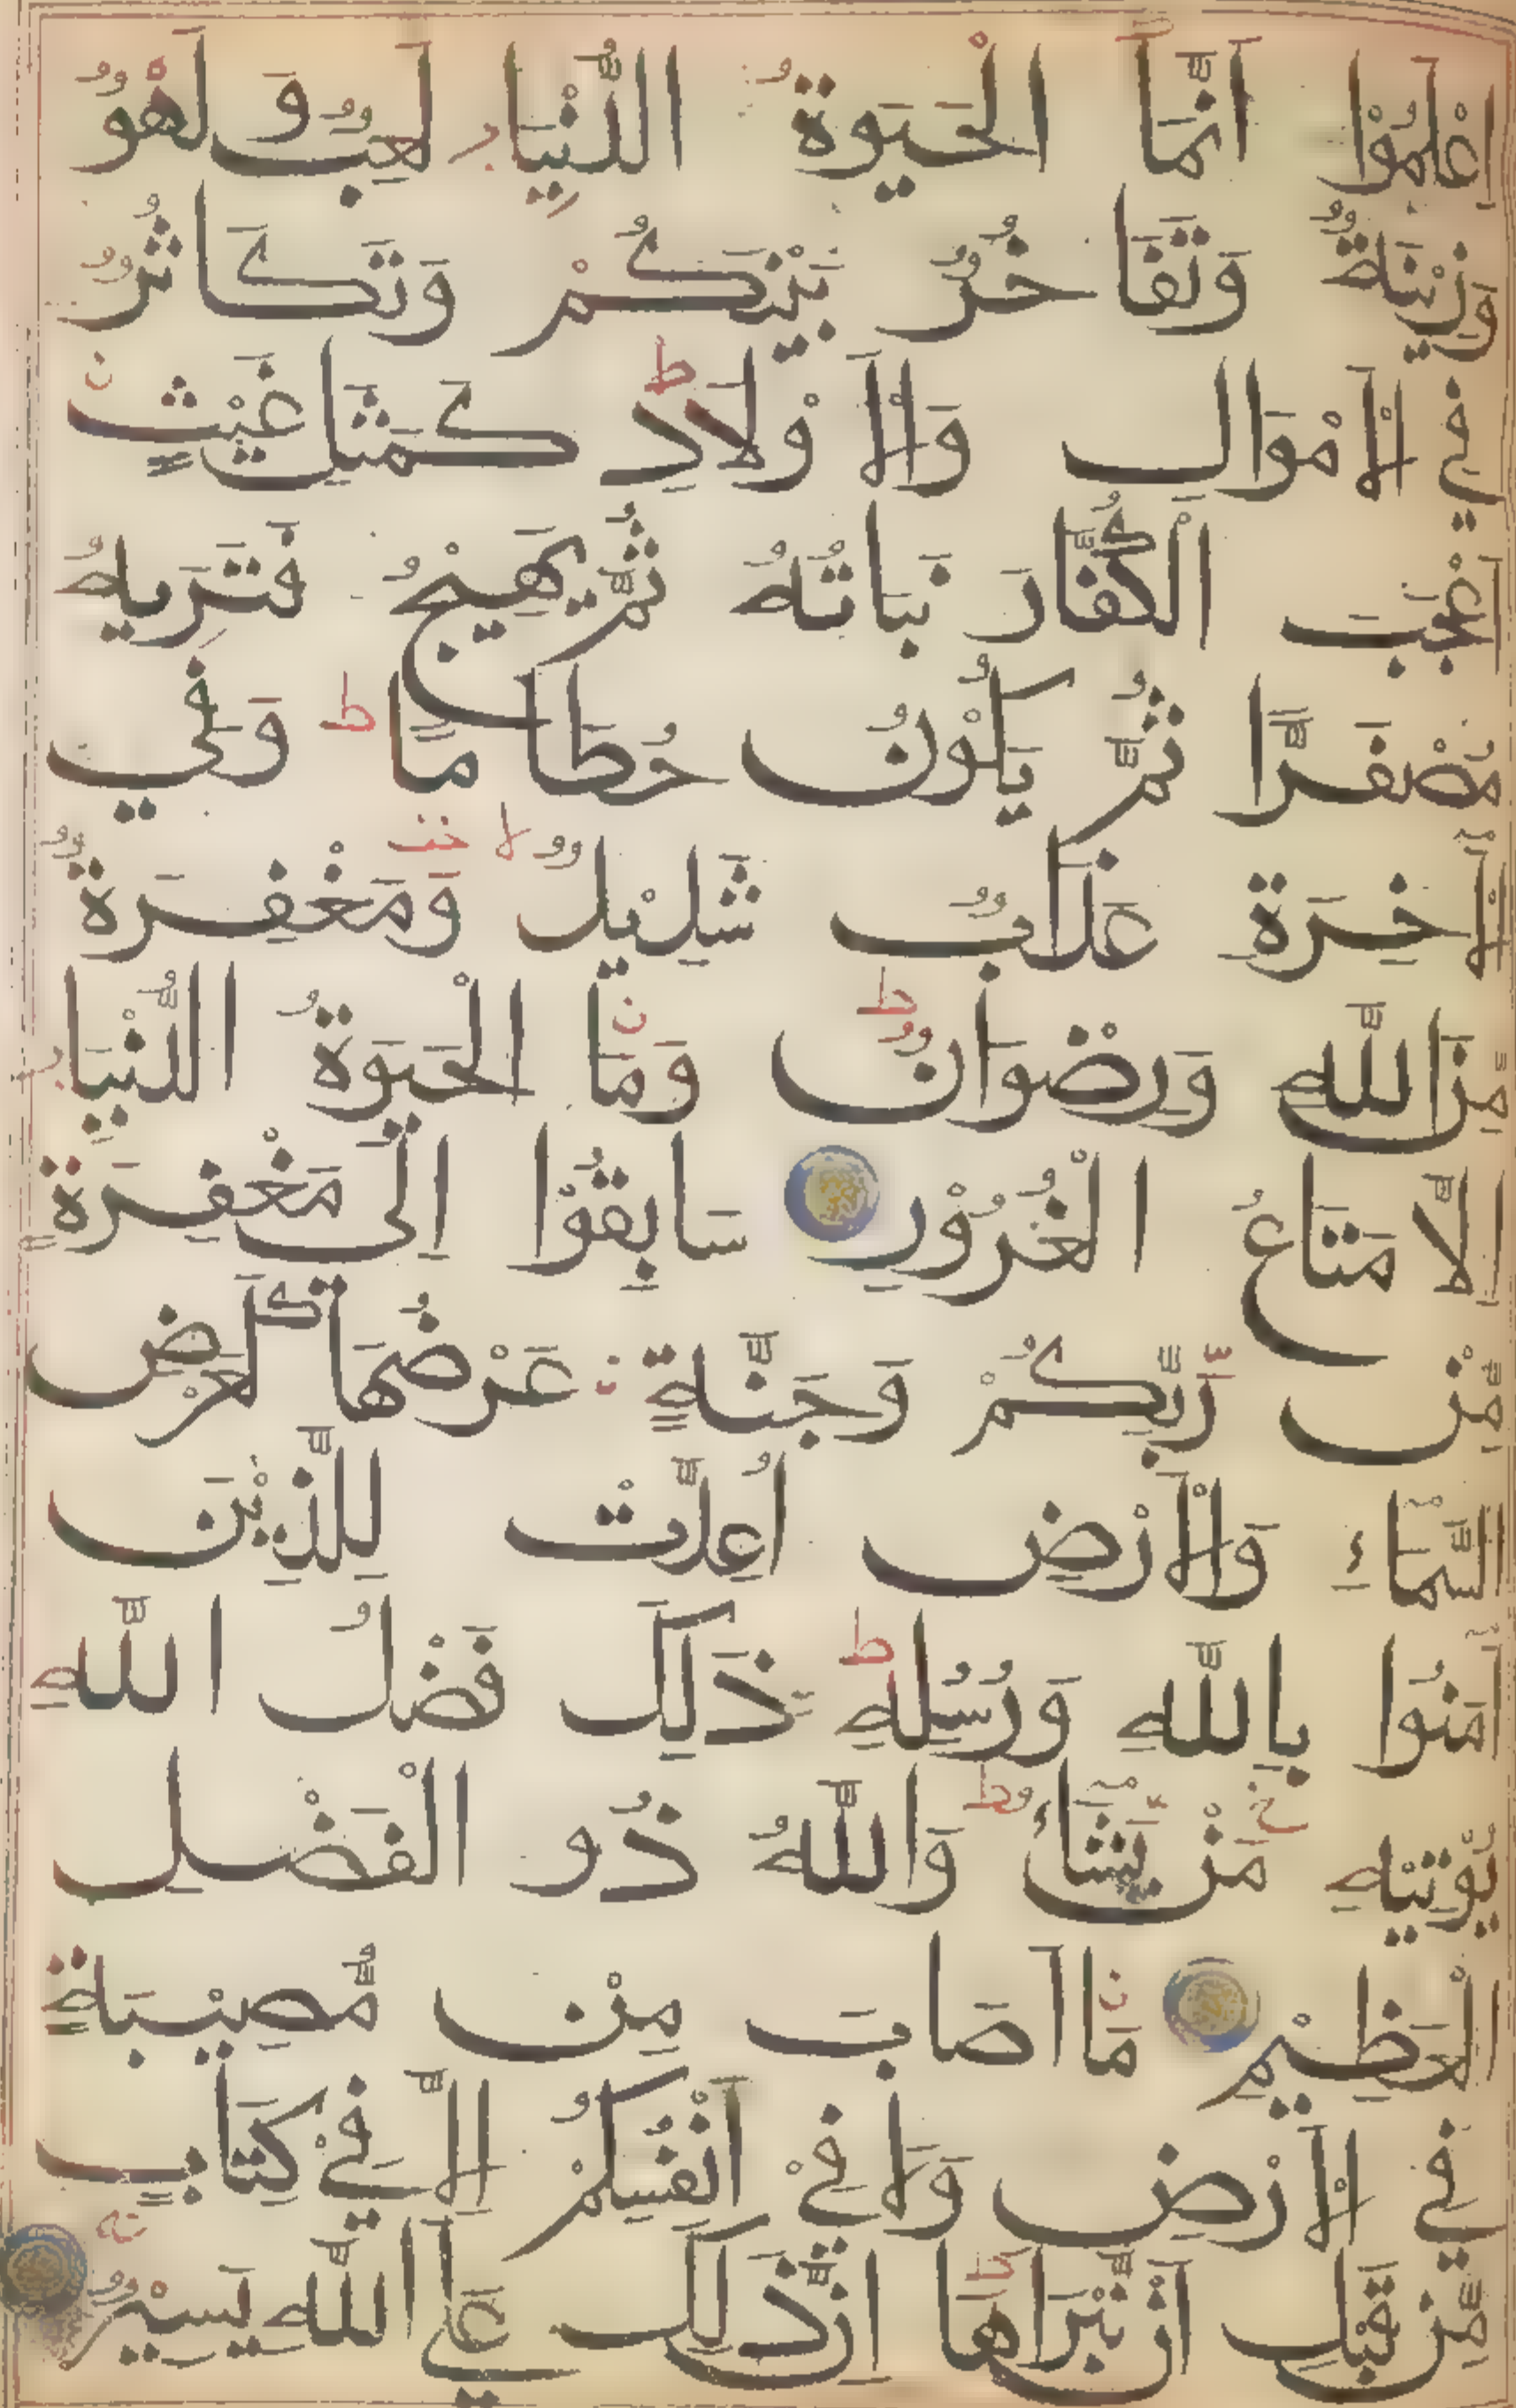 اِعْلَمُوْا اَنَّمَا الْحَيَوةُ الدُّنْيَا لَعِبٌ وَ لَهْوٌ
وَزِيْنَةٌ وَتَفَاخُرٌ بَيْنَكُمْ وَتَكَاثُرٌ
فِي الْاَمْوَالِ وَالْاَوْلَادِ ط كَمَثَلِ غَيْثٍ
اَعْجَبَ الْكُفَّارَ نَبَاتُهُ ثُمَّ يَهِيْجُ فَتَرَيهُ
مُصْفَرًّا ثُمَّ يَكُوْنُ حُطَامًا ط وَفِي
الْاٰخِرَةِ عَذَابٌ شَدِيْدٌ لا وَمَغْفِرَةٌ
مِّنَ اللّٰهِ وَرِضْوَانٌ ط وَمَا الْحَيَوةُ الدُّنْيَا
اِلَّا مَتَاعُ الْغُرُوْرِ سَابِقُوْا اِلَى مَغْفِرَةٍ
مِّنْ رَّبِّكُمْ وَجَنَّةٍ عَرْضُهَا كَعَرْضِ
السَّمَاءِ وَالْاَرْضِ اُعِدَّتْ لِلَّذِيْنَ
اٰمَنُوا بِاللّٰهِ وَرُسُلِهِ ط ذَلِكَ فَضْلُ اللّٰهِ
يُؤْتِيْهِ مَنْ يَّشَاءُ ط وَاللّٰهُ ذُو الْفَضْلِ
الْعَظِيْمِ مَا اَصَابَ مِنْ مُّصِيْبَةٍ
فِي الْاَرْضِ وَلَا فِيْ اَنْفُسِكُمْ اِلَّا فِيْ كِتَابٍ
مِّنْ قَبْلِ اَنْ نَّبْرَاَهَا ط اِنَّ ذَلِكَ عَلَى اللّٰهِ يَسِيْرٌ